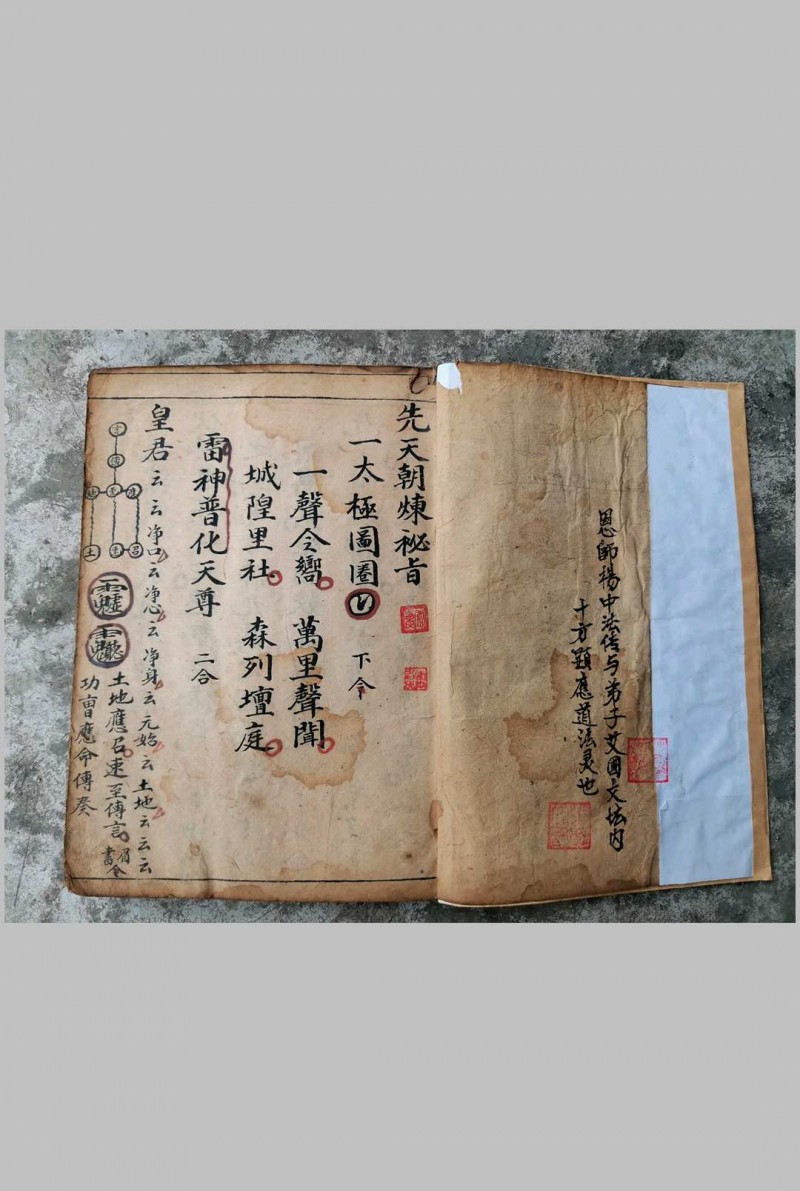 恩師楊中法传与弟子艾国文坛内
十方顯應道法灵也
先天朝煉祕旨
一太極圖圈 下令
一聲令嚮 萬里聲聞
城隍里社 森列壇庭
雷神普化天尊 二合
皇君云云净口云净心云净身云元始云土地云云云
土地應召速至傳言
功曹應命傳奏